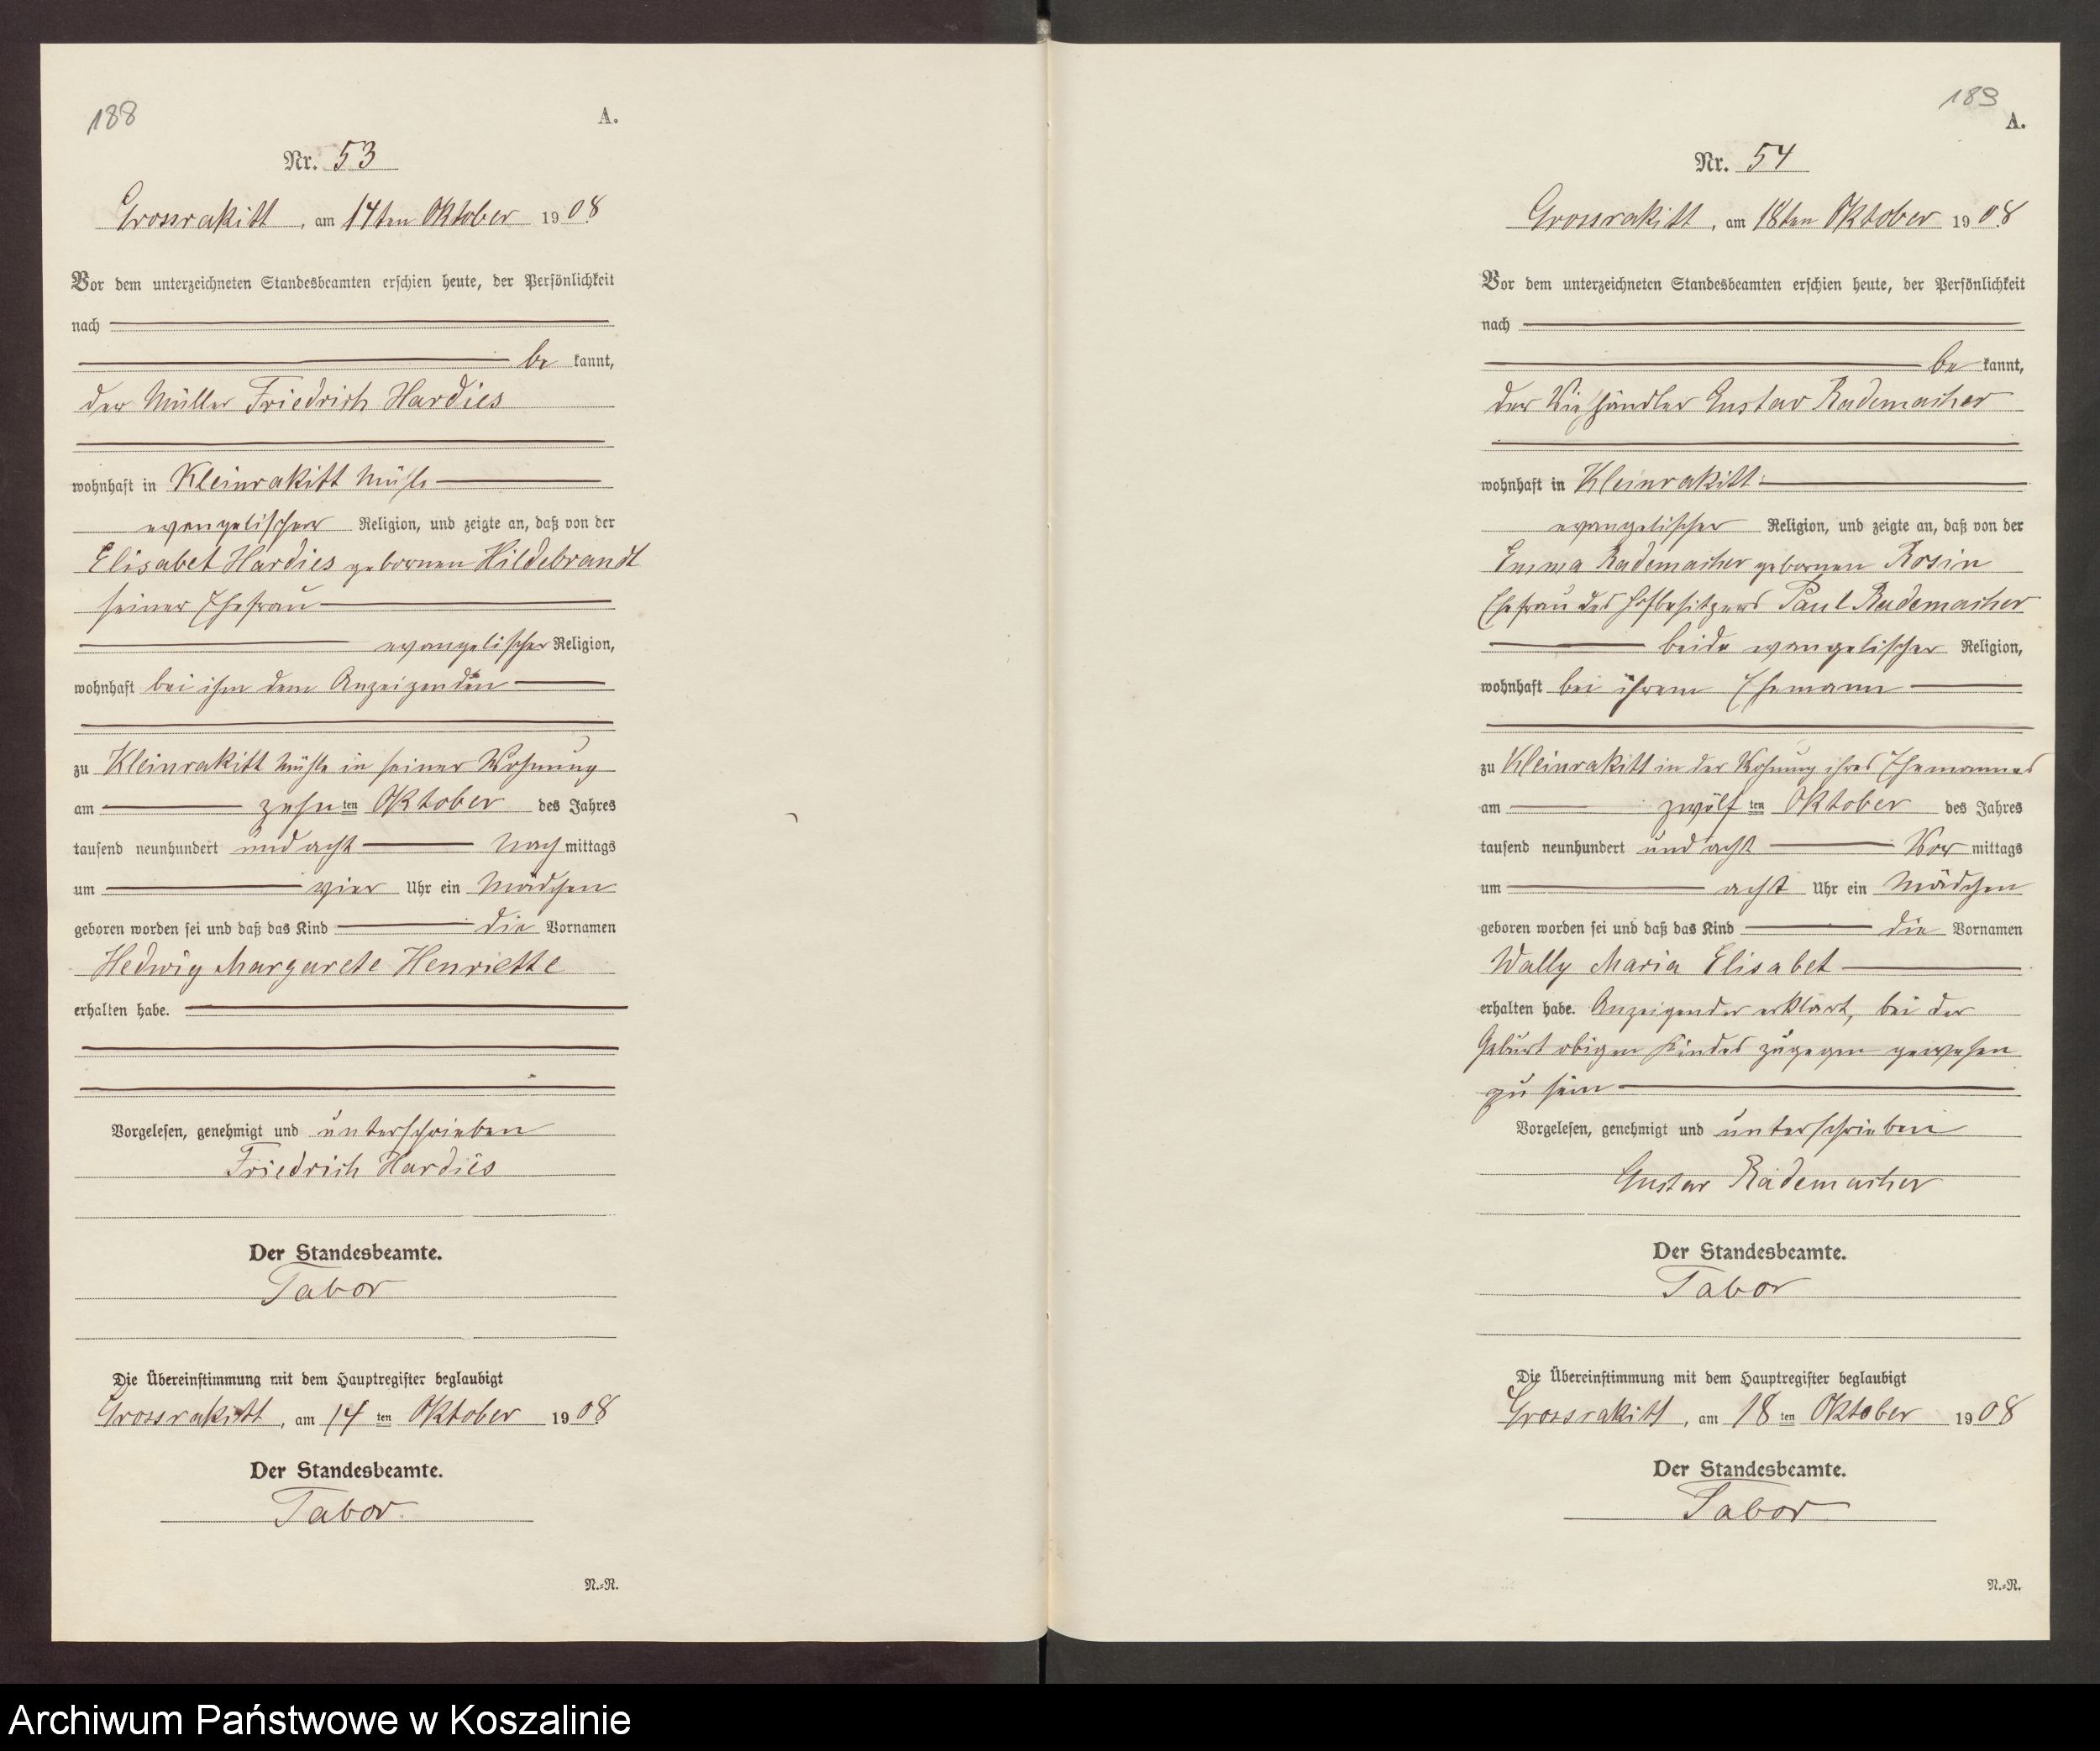 188
A.
Nr. 53
Grossrakitt, am 14ten Oktober 1908
Vor dem unterzeichneten Standesbeamten erschien heute, der Persönlichkeit
nach
be kannt,
der Müller Friedrich Hardies
wohnhaft in Kleinrakitt Mühle
evangelischer Religion, und zeigte an, daß von der
Elisabet Hardies gebornen Hildebrandt
seiner Ehefrau
evangelischer Religion,
wohnhaft bei ihm dem Anzeigenden
zu Kleinrakitt Mühle in seiner Wohnung
am zehn ten Oktober des Jahres
tausend neunhundert und acht Nach mittags
um vier Uhr ein Mädchen
geboren worden sei und daß das Kind die Vornamen
Hedwig Margarete Henriette
erhalten habe.
Vorgelesen, genehmigt und unterschrieben
Friedrich Hardies
Der Standesbeamte.
Tabor
Die Übereinstimmung mit dem Hauptregister beglaubigt
Grossrakitt, am 14 ten Oktober 1908
Der Standesbeamte.
Tabor
N.=N.
189
A.
Nr. 54
Grossrakitt, am 18ten Oktober 1908
Vor dem unterzeichneten Standesbeamten erschien heute, der Persönlichkeit
nach
be kannt,
der Viehhändler Gustav Rademacher
wohnhaft in Kleinrakitt
evangelischer Religion, und zeigte an, daß von der
Emma Rademacher gebornen Rosin
Ehefrau des Hofbesitzers Paul Rademacher
beide evangelischer Religion,
wohnhaft bei ihrem Ehemann
zu Kleinrakitt in der Wohnung ihres Ehemannes
am zwölf ten Oktober des Jahres
tausend neunhundert und acht Vor mittags
um acht Uhr ein Mädchen
geboren worden sei und daß das Kind die Vornamen
Wally Maria Elisabet
erhalten habe. Anzeigender erklärt, bei der
Geburt obigen Kindes zugegen gewesen
zu sein
Vorgelesen, genehmigt und unterschrieben
Gustav Rademacher
Der Standesbeamte.
Tabor
Die Übereinstimmung mit dem Hauptregister beglaubigt
Grossrakitt, am 18 ten Oktober 1908
Der Standesbeamte.
Tabor
N.=N.
Archiwum Państwowe w Koszalinie